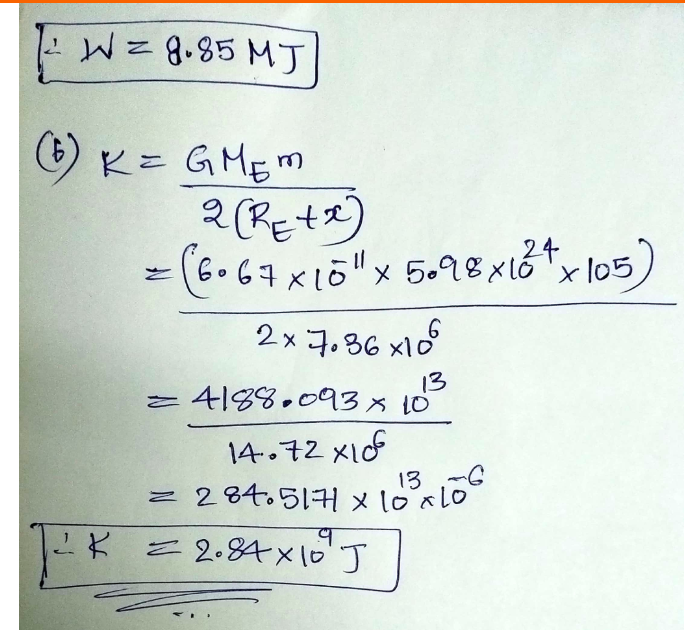 ∴ W = 8.85 MJ
(b) K = GM_E m
2(R_E + x)
= (6.67 × 10⁻¹¹ × 5.98 × 10²⁴ × 105)
2 × 7.36 × 10⁶
= 4188.093 × 10¹³
14.72 × 10⁶
= 284.5171 × 10¹³ × 10⁻⁶
∴ K = 2.84 × 10⁹ J